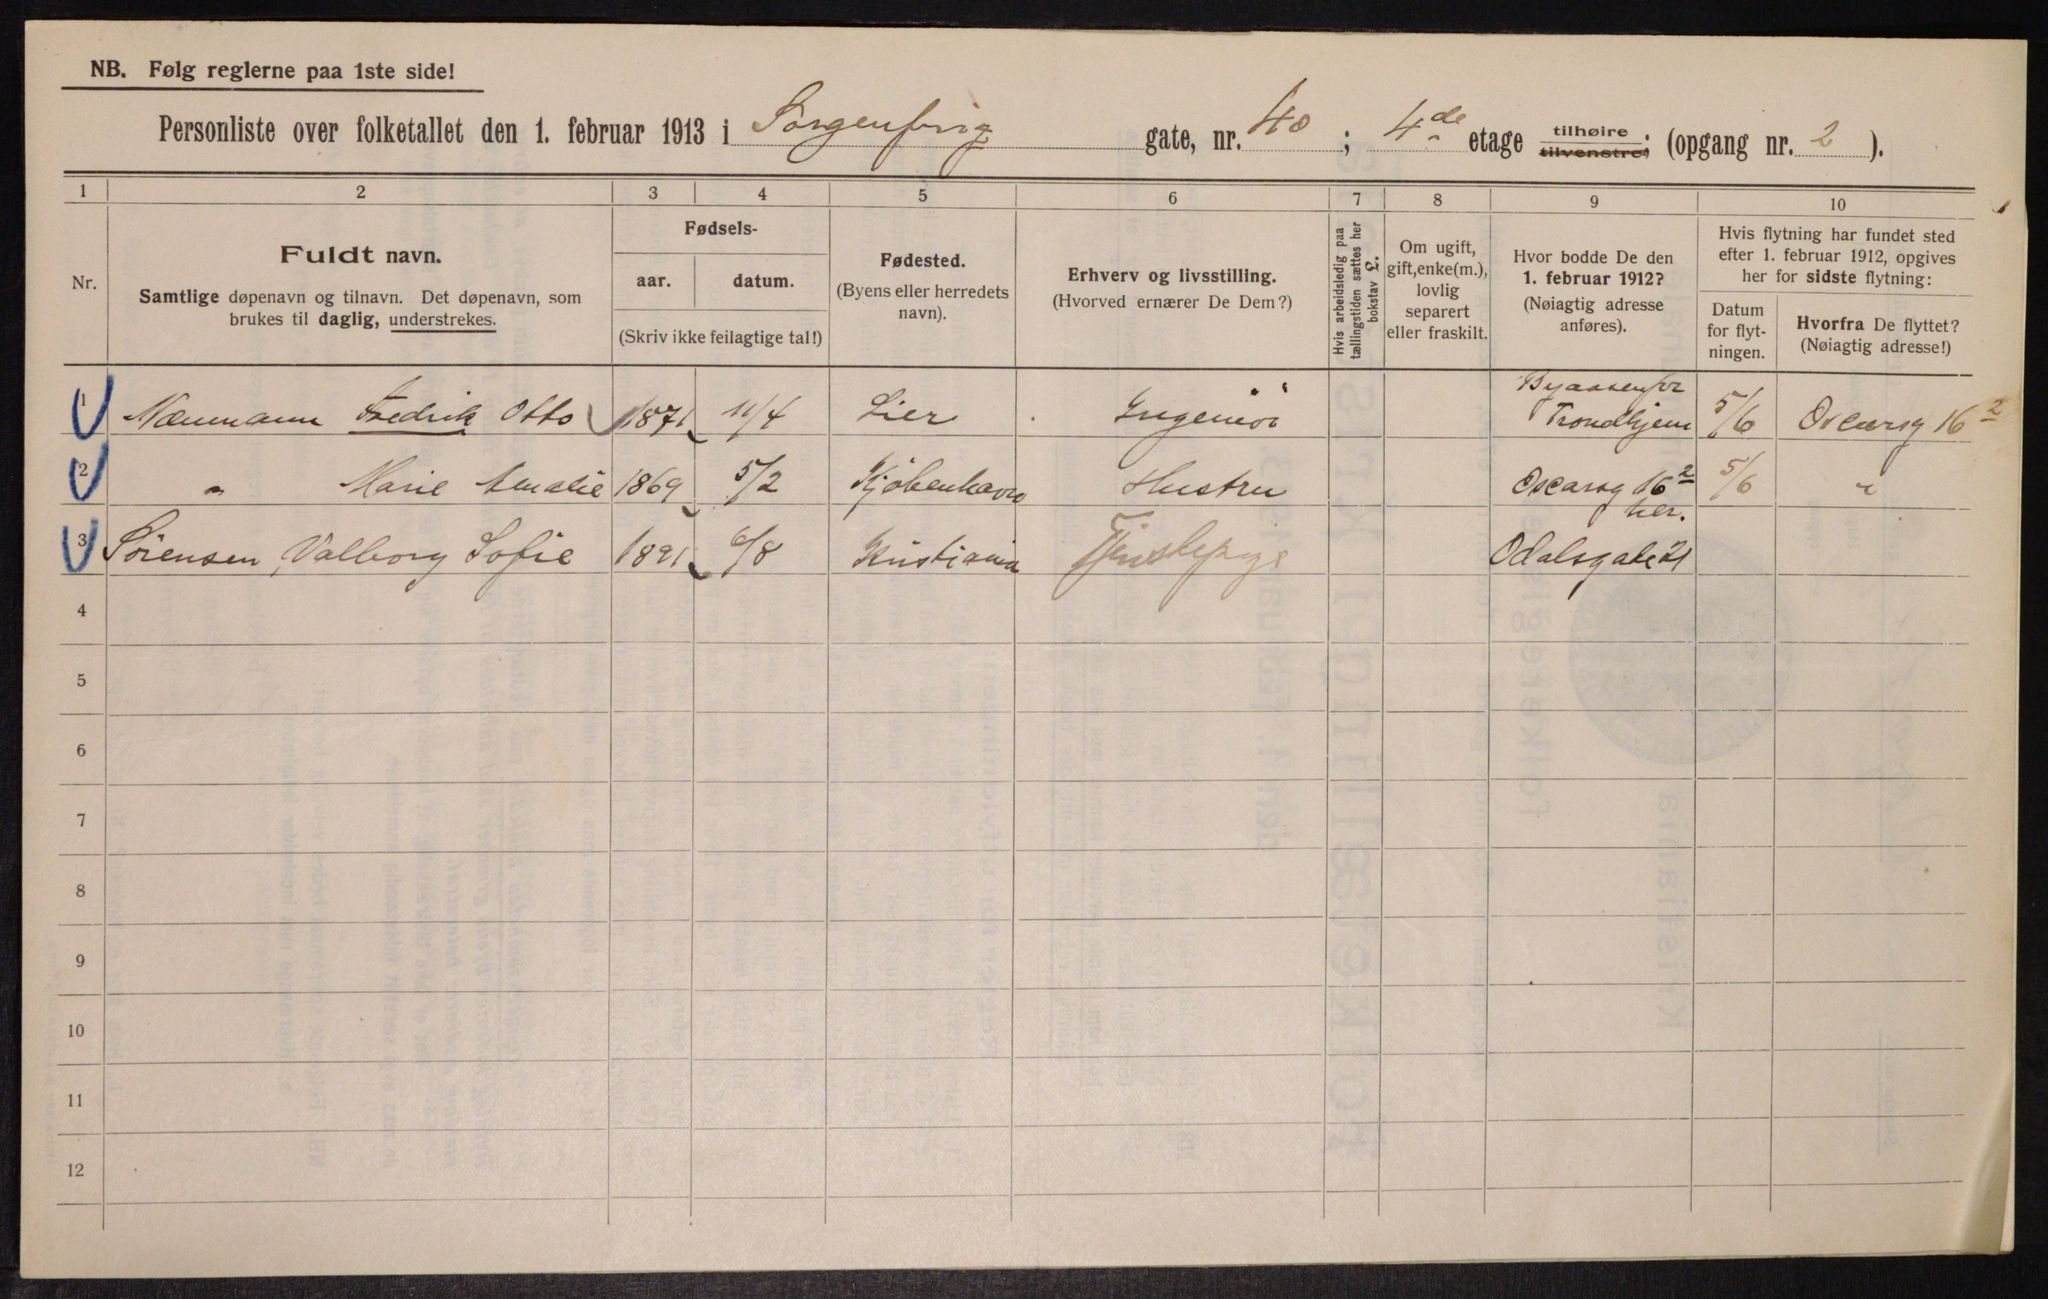 NB. Følg reglerne paa 1ste side!
Personliste over folketallet den 1. februar 1913 i Sorgenfrig gate, nr. 40 ; 4de etage tilhøire tilvenstre; (opgang nr. 2 ).
1 2 3 4 5 6 7 8 9 10
Nr.
Fuldt navn.
Samtlige døpenavn og tilnavn. Det døpenavn, som
brukes til daglig, understrekes.
Fødsels-
aar. datum.
(Skriv ikke feilagtige tal!)
Fødested.
(Byens eller herredets
navn).
Erhverv og livsstilling.
(Hvorved ernærer De Dem?)
Hvis arbeidsledig paa
tællingstiden sættes her
bokstav L.
Om ugift,
gift, enke(m.),
lovlig
separert
eller fraskilt.
Hvor bodde De den
1. februar 1912?
(Nøiagtig adresse
anføres).
Hvis flytning har fundet sted
efter 1. februar 1912, opgives
her for sidste flytning:
Datum
for flyt-
ningen.
Hvorfra De flyttet?
(Nøiagtig adresse!)
1 Fredrik Otto 1871 11/4 Lier Ingeniør Trondhjem 5/6 Oscarsg 16 2
2 " Marie Amalie 1869 5/2 Kjøbenhavn Hustru Oscarsg 16 2 5/6 "
her.
3 Sørensen, Valborg Sofie 1891 6/8 Kristiania Tjenstepige Odalsgate 21
4
5
6
7
8
9
10
11
12